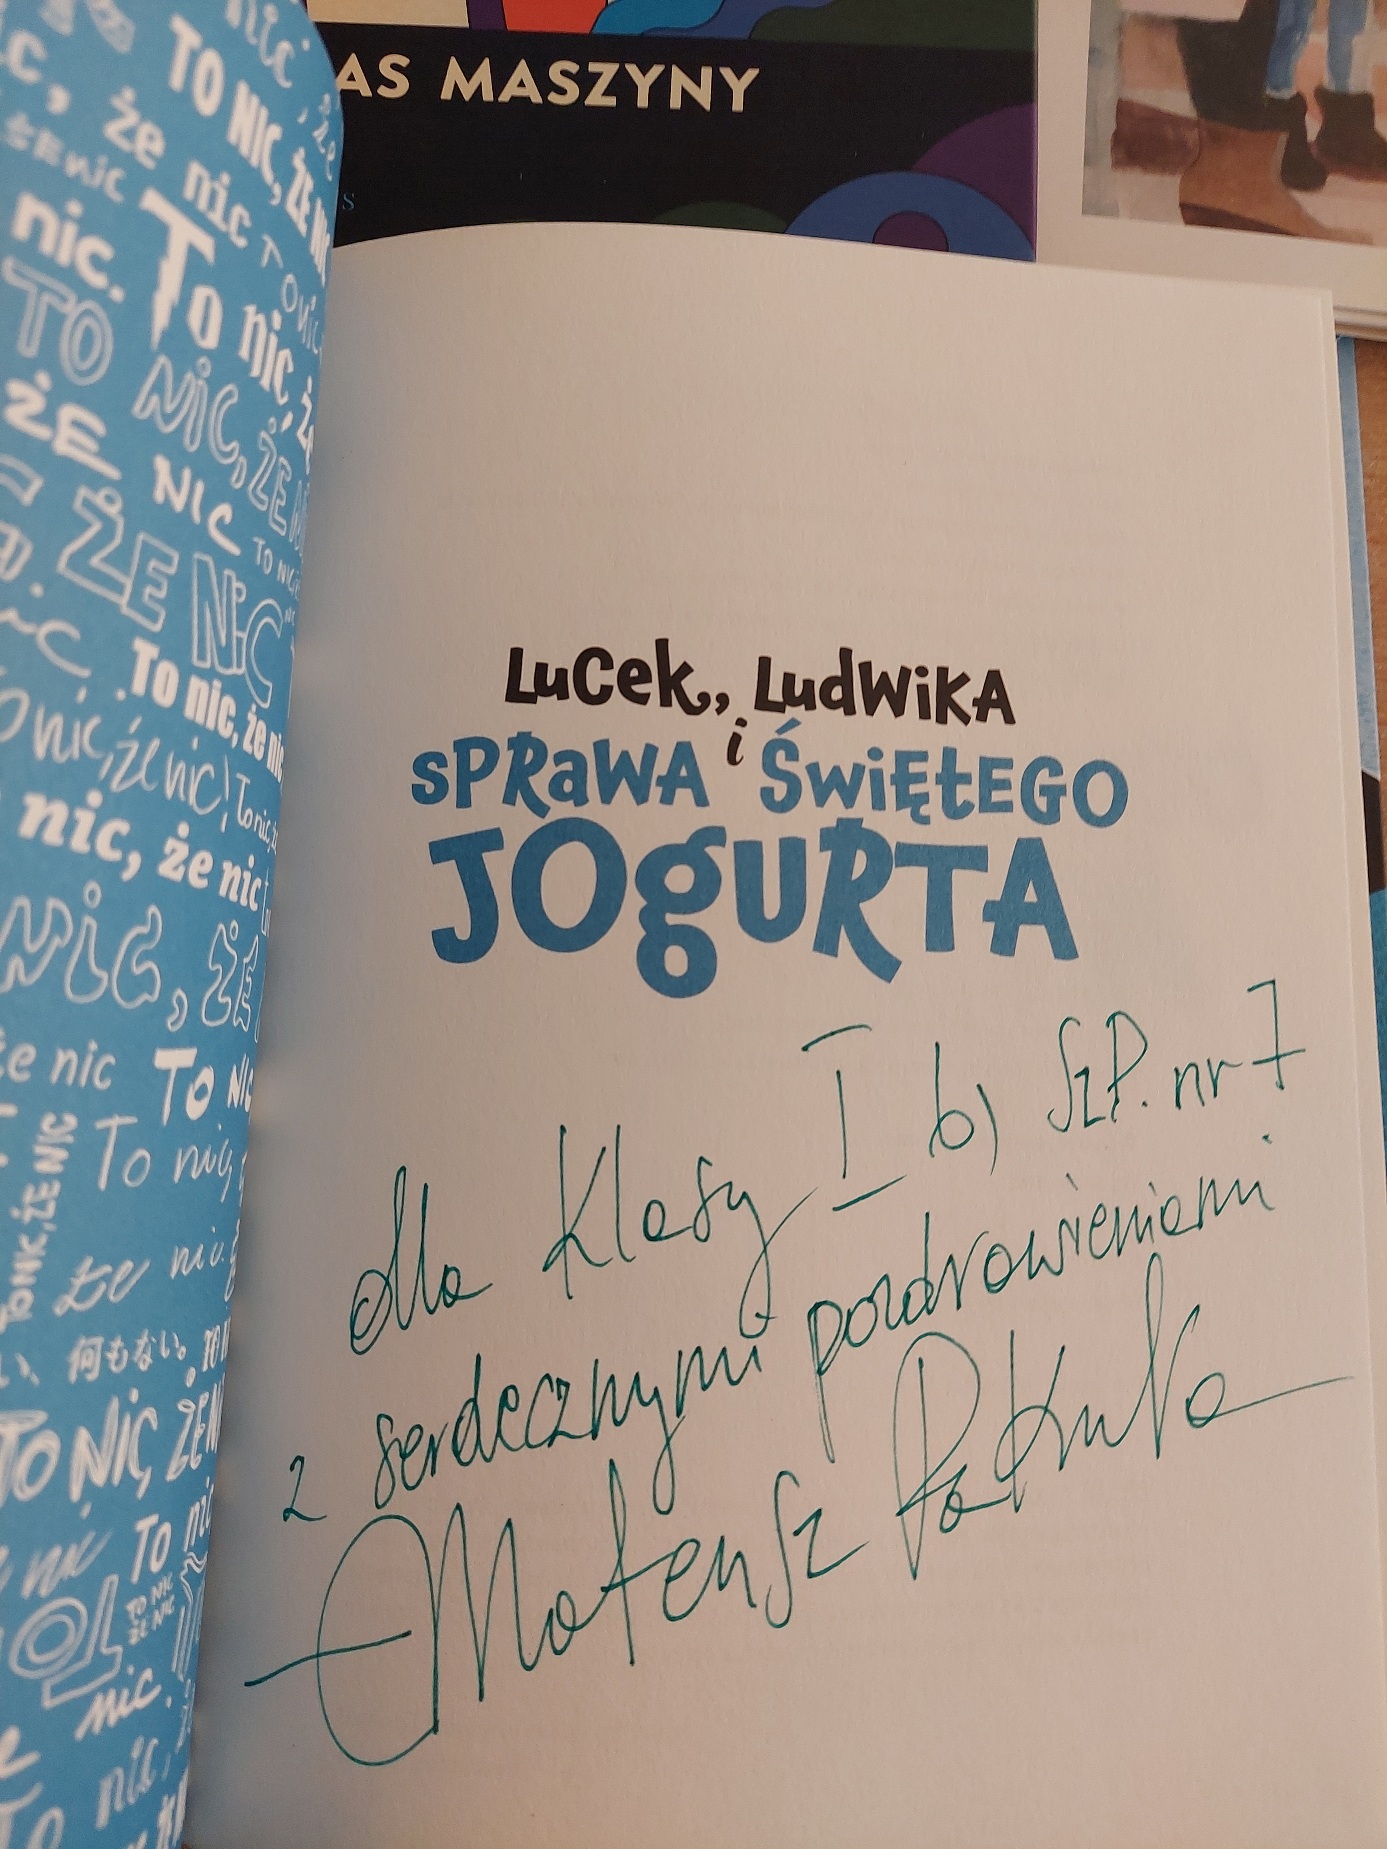 AS MASZYNY
S
TO NIC, ŻE NIC
że nic
nic.
To nic, że
TO NIC, ŻE N
ŻE NIC
TO NIC
ŻE NIC
To nic, że nic
o nic, że nic
To nic, że
nic, że nic
NIC, ŻE
że nic
TO NIC
To nic,
TO NIC, ŻE NIC
że nic.
い、何もない。TO N
TO NIC, ŻE N
nic
TO nic
TO NIC
ŻE NIC
nic.
To nic,
LuCek, LudWiKA
i
sPRaWA ŚwiĘtEGO
JOgURTA
dla Klasy I b) SzP. nr 7
z serdecznymi pozdrowieniami
Mateusz Pakuła